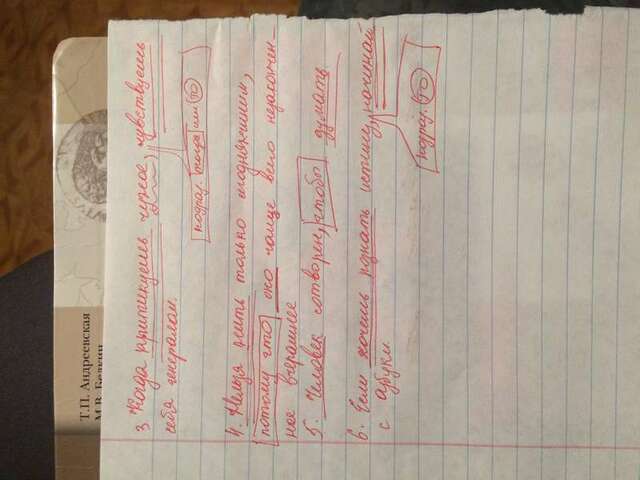 Т.П. Андреевская
М.В. Белкин
3. Когда критикуешь чужое, чувствуешь
себя генералом.
подраз. тогда или то
4. Нельзя жить только сегодняшним,
потому что оно чаще всего незакончен-
ное вчерашнее
5. Человек сотворен, чтобы думать
6. Если хочешь познать истину, начинай
с азбуки.
подраз. то